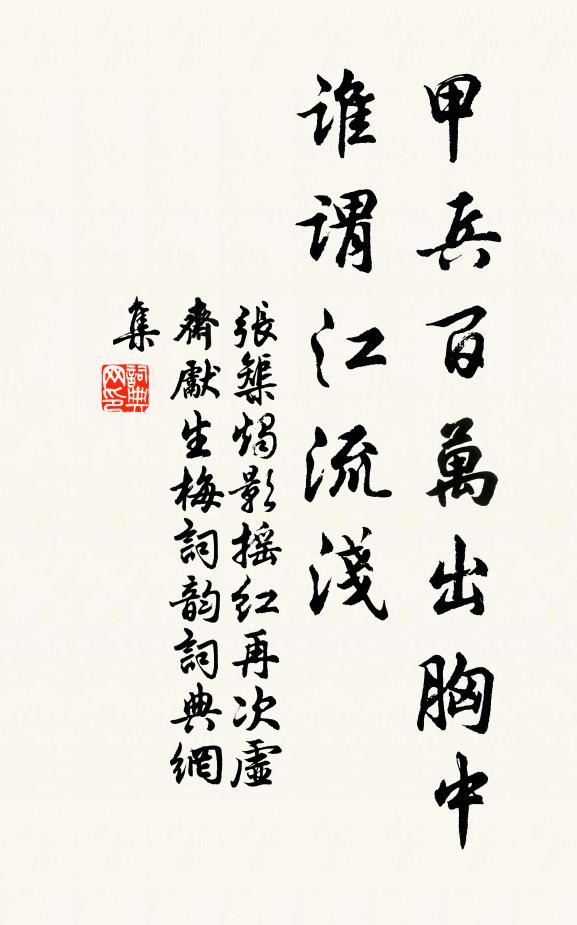 甲兵百萬出胸中
誰謂江流淺
張榘燭影搖紅再次虛
齋獻生梅詞韵詞典網
集
詞典
网印